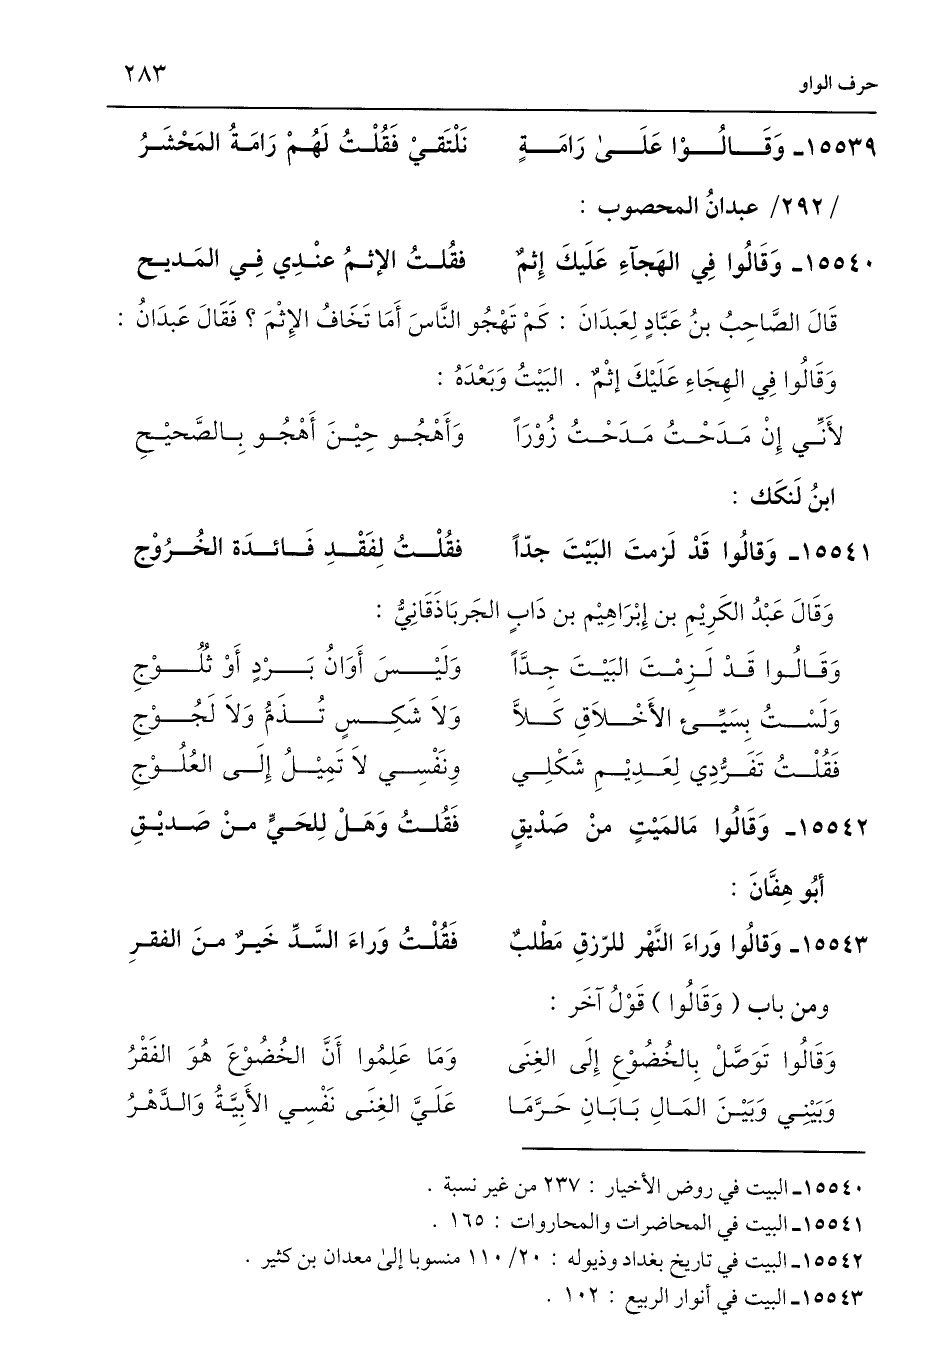 حرف الواو ٢٨٣
١٥٥٣٩ـ وَقَالُوْا عَلَىٰ رَامَةٍ نَلْتَقِيْ فَقُلْتُ لَهُمْ رَامَةُ المَحْشَرُ
/٢٩٢/ عبدانُ المحصوب :
١٥٥٤٠ـ وَقَالُوا فِي الهَجآءِ عَلَيكَ إِثمٌ فقُلتُ الإثمُ عنْدِي فِي المَديح
قَالَ الصَّاحِبُ بنُ عَبَّادٍ لِعَبدَانَ : كَمْ تَهْجُو النَّاسَ أَمَا تَخَافُ الإِثْمَ ؟ فَقَالَ عَبدَانُ :
وَقَالُوا فِي الهِجَاءِ عَلَيْكَ إثْمٌ . البَيْتُ وَبَعْدَهُ :
لأَنِّي إِنْ مَدَحْتُ مَدَحْتُ زُوْرَاً وَأَهْجُو حِيْنَ أَهْجُو بِالصَّحيْحِ
ابنُ لَنكَك :
١٥٥٤١ـ وَقالُوا قَدْ لَزمتَ البَيْتَ جدّاً فقُلْتُ لِفَقْدِ فَائدَة الخُرُوْج
وَقَالَ عَبْدُ الكَرِيْمِ بن إِبْرَاهِيْم بن دَابٍ الجَرباذَقَانِيُّ :
وَقَالُوا قَدْ لَزِمْتَ البَيْتَ جِدَّاً وَلَيْسَ أَوَانُ بَرْدٍ أَوْ ثُلُوْجِ
وَلَسْتُ بِسَيِّئِ الأَخْلاَقِ كَلاَّ وَلاَ شَكِسٍ تُذَمُّ وَلاَ لَجُوْجِ
فَقُلْتُ تَفَرُّدِي لِعَدِيْمِ شَكْلِي وَنَفْسِي لاَ تَمِيْلُ إِلَى العُلُوْجِ
١٥٥٤٢ـ وَقَالُوا مَالمَيْتٍ منْ صَدْيقٍ فَقُلتُ وَهَلْ لِلحَيِّ منْ صَديْقِ
أبُو هِفَّانَ :
١٥٥٤٣ـ وَقالُوا وَراءَ النَّهْر للرّزقِ مَطْلبٌ فَقُلْتُ وَراءَ السَّدِّ خَيرٌ منَ الفقرِ
ومن باب ( وَقَالُوا ) قَوْلُ آخَر :
وَقَالُوا تَوَصَّلْ بِالخُضُوْعِ إِلَى الغِنَى وَمَا عَلِمُوا أَنَّ الخُضُوْعَ هُوَ الفَقْرُ
وَبَيْنِي وَبَيْنَ المَالِ بَابَانِ حَرَّمَا عَلَيَّ الغِنَى نَفْسِي الأَبِيَّةُ وَالدَّهْرُ
١٥٥٤٠ـ البيت في روض الأخيار : ٢٣٧ من غير نسبة .
١٥٥٤١ـ البيت في المحاضرات والمحاروات : ١٦٥ .
١٥٥٤٢ـ البيت في تاريخ بغداد وذيوله : ٢٠/ ١١٠ منسوبا إلىٰ معدان بن كثير .
١٥٥٤٣ـ البيت في أنوار الربيع : ١٠٢ .